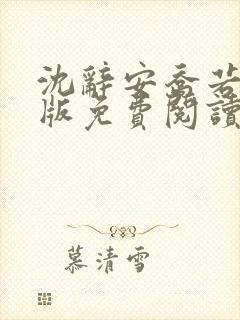 沈辭安喬若
版免費閱讀
慕清雪